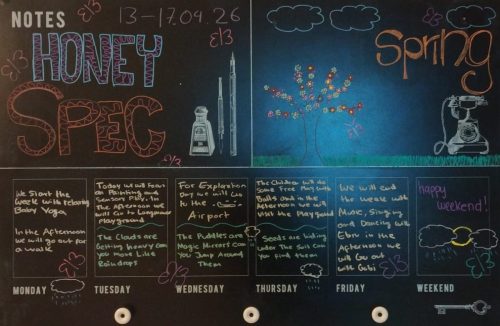 NOTES
13-17.04.26
HONEY
SPEC
Spring
We Start the
week with relaxing
Baby Yoga
In the Afternoon
we will go out for
a walk
MONDAY
Today we will Focus
on Painting and
Sensory Play. In
The Afternoon we
will Go to Language
Playground
The Clouds are
Getting heavy can
you move Like
Raindrops
TUESDAY
For Exploration
Day we will Go
to the
Airport
The Puddles are
Magic Mirrors can
You Jump Around
Them
WEDNESDAY
The Children will do
Some Free Play with
Balls and in the
Afternoon we will
Visit the Playground
Seeds are hiding
under The Soil can
you find them
THURSDAY
We will end
the week with
Music, Singing
and Dancing with
Ebru in the
Afternoon we
will Go out
with Gabi
FRIDAY
happy
weekend!
WEEKEND